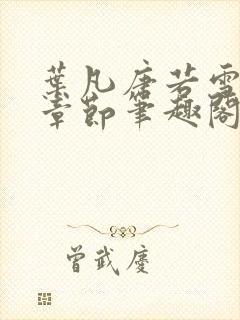 葉凡唐若雪
章節筆趣閣
曾武慶